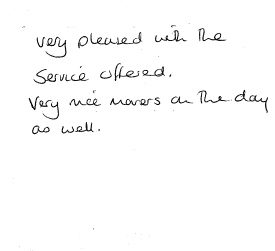 very pleased with the
Service offered.
Very nice movers on the day
as well.